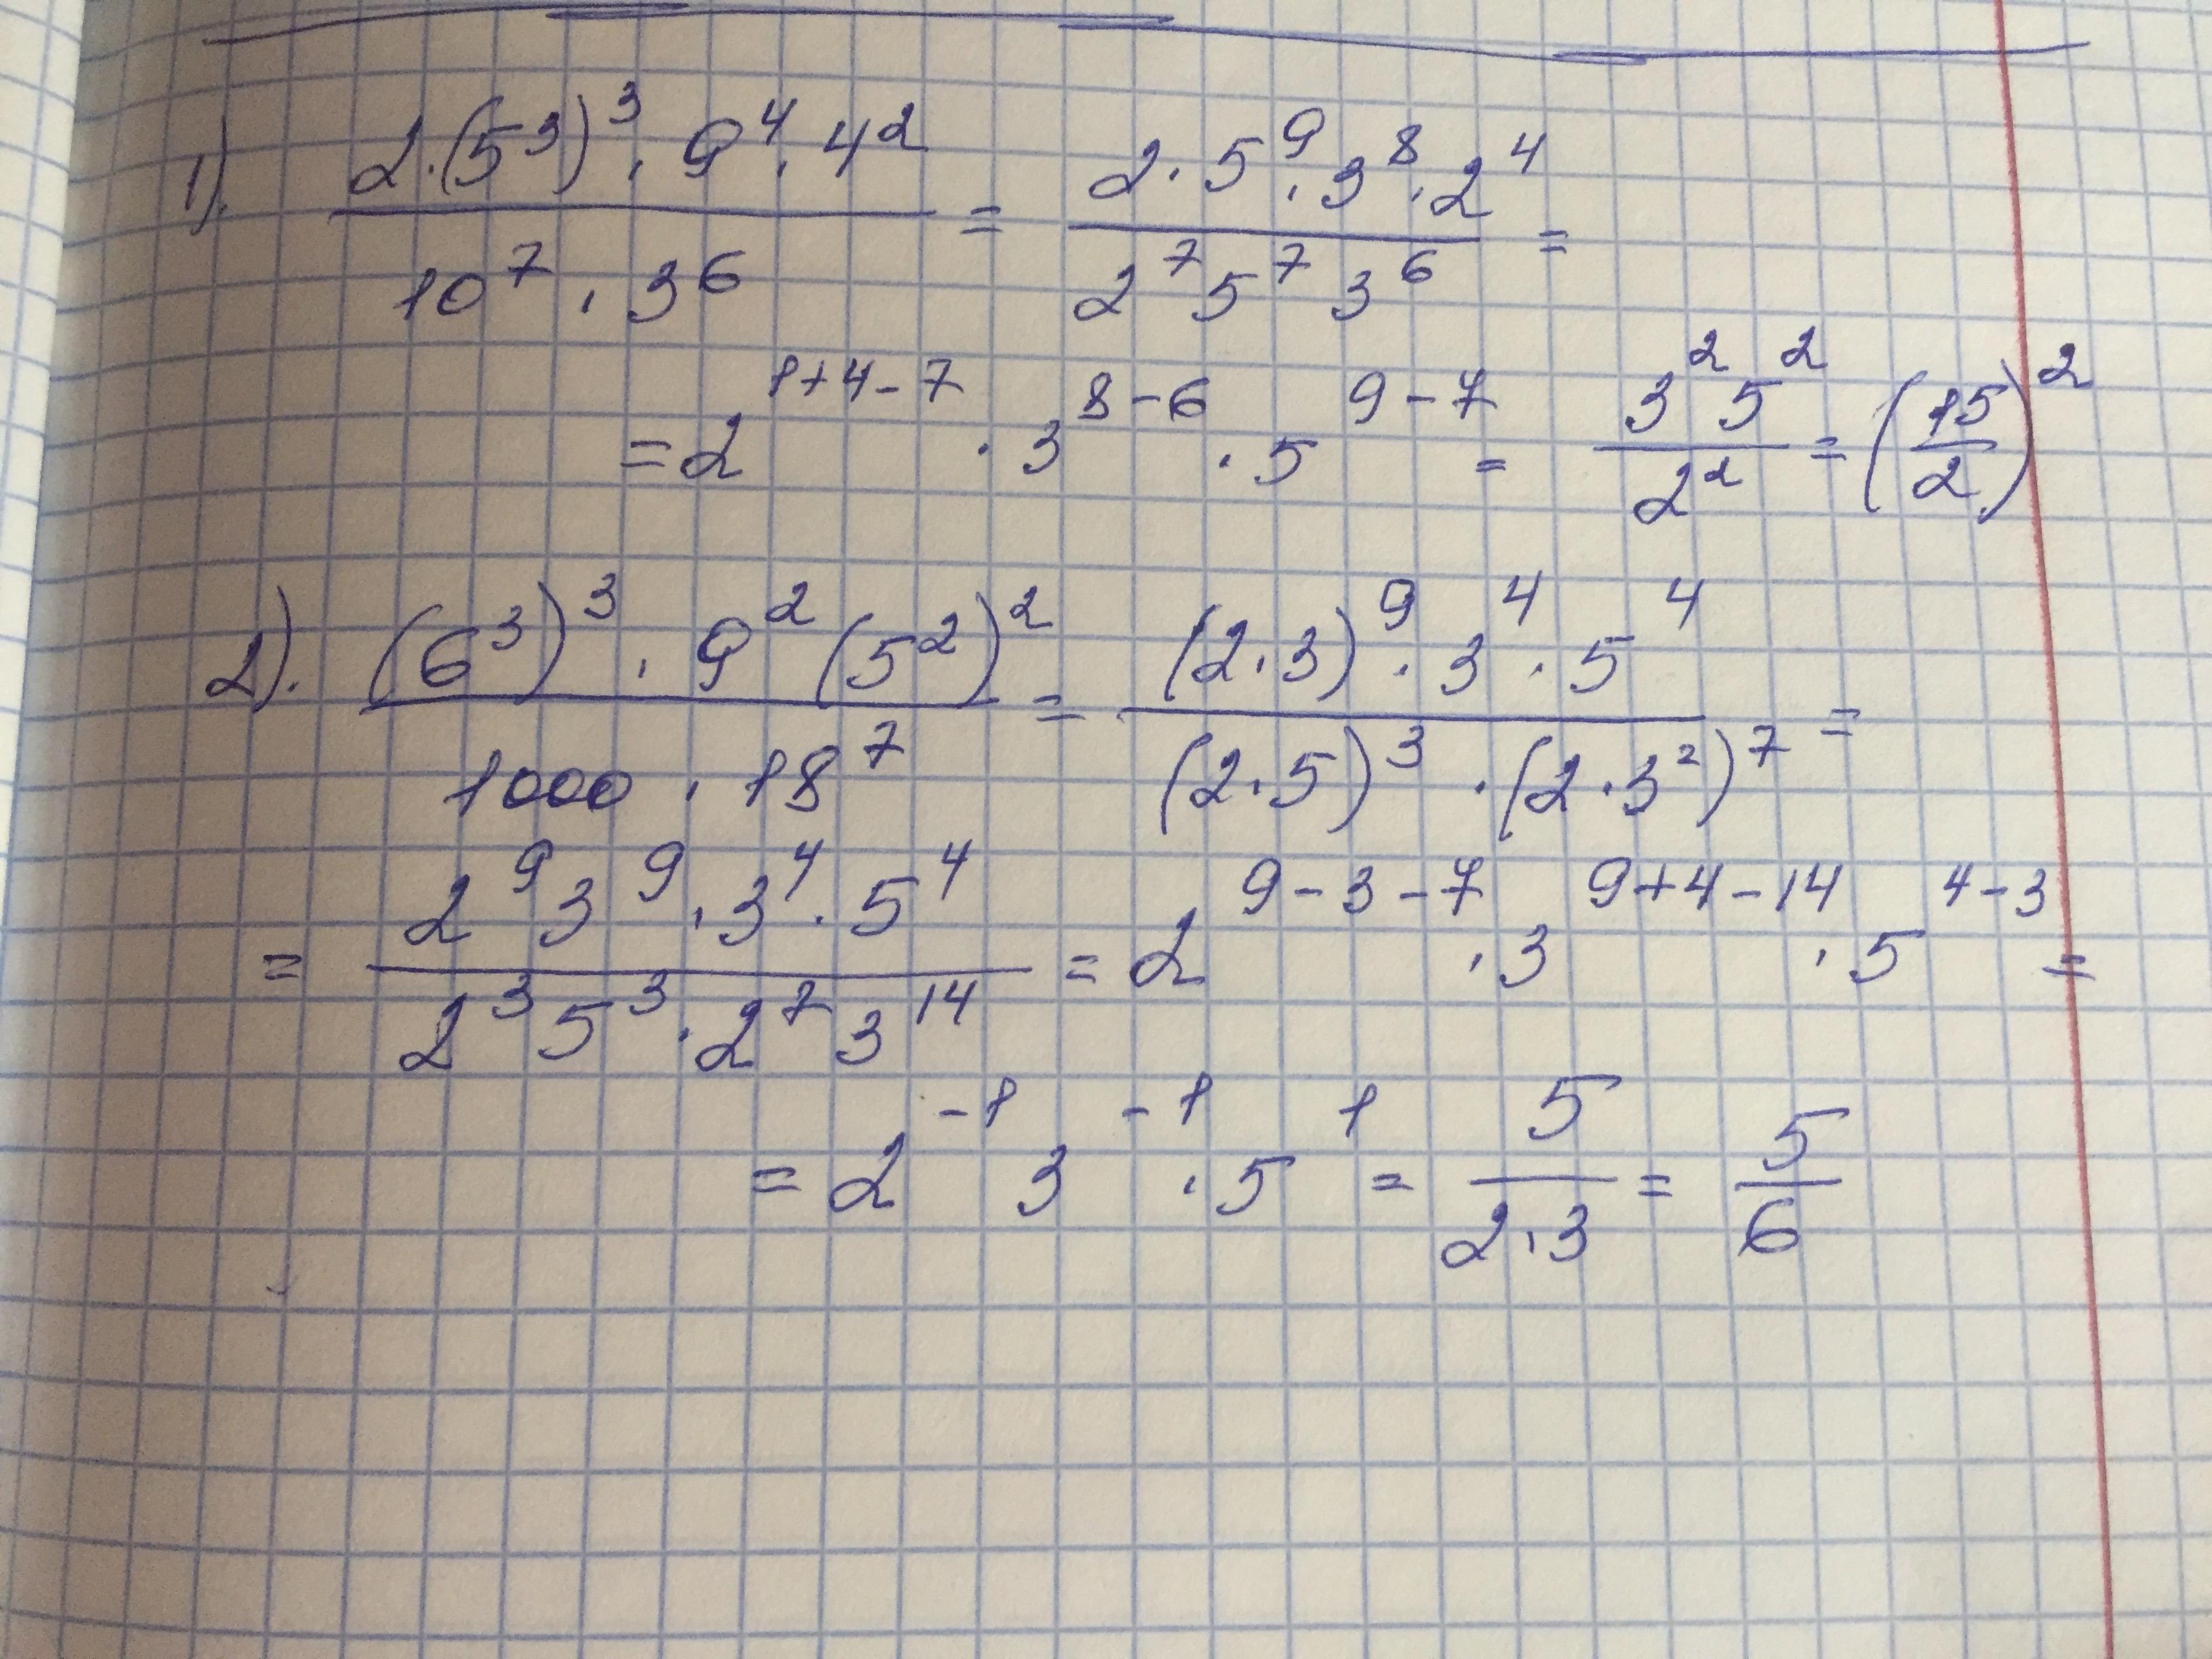 1). \frac{2·(5^3)^3·9^4·4^2}{10^7·3^6} = \frac{2·5^9·3^8·2^4}{2^7 5^7 3^6} =
= 2^{1+4-7}·3^{8-6}·5^{9-7} = \frac{3^2 5^2}{2^2} = (\frac{15}{2})^2
2). \frac{(6^3)^3·9^2(5^2)^2}{1000·18^7} = \frac{(2·3)^9·3^4·5^4}{(2·5)^3·(2·3^2)^7} =
= \frac{2^9 3^9·3^4·5^4}{2^3 5^3·2^7 3^{14}} = 2^{9-3-7}·3^{9+4-14}·5^{4-3} =
= 2^{-1} 3^{-1}·5^1 = \frac{5}{2·3} = \frac{5}{6}